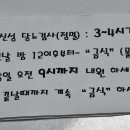 신성 담낭검사(정밀) : 3~4시
전날 밤 12이후부터~ "금식" (물
당일 오전 9시까지 내원 하세
끝날때까지 계속 "금식" 하세